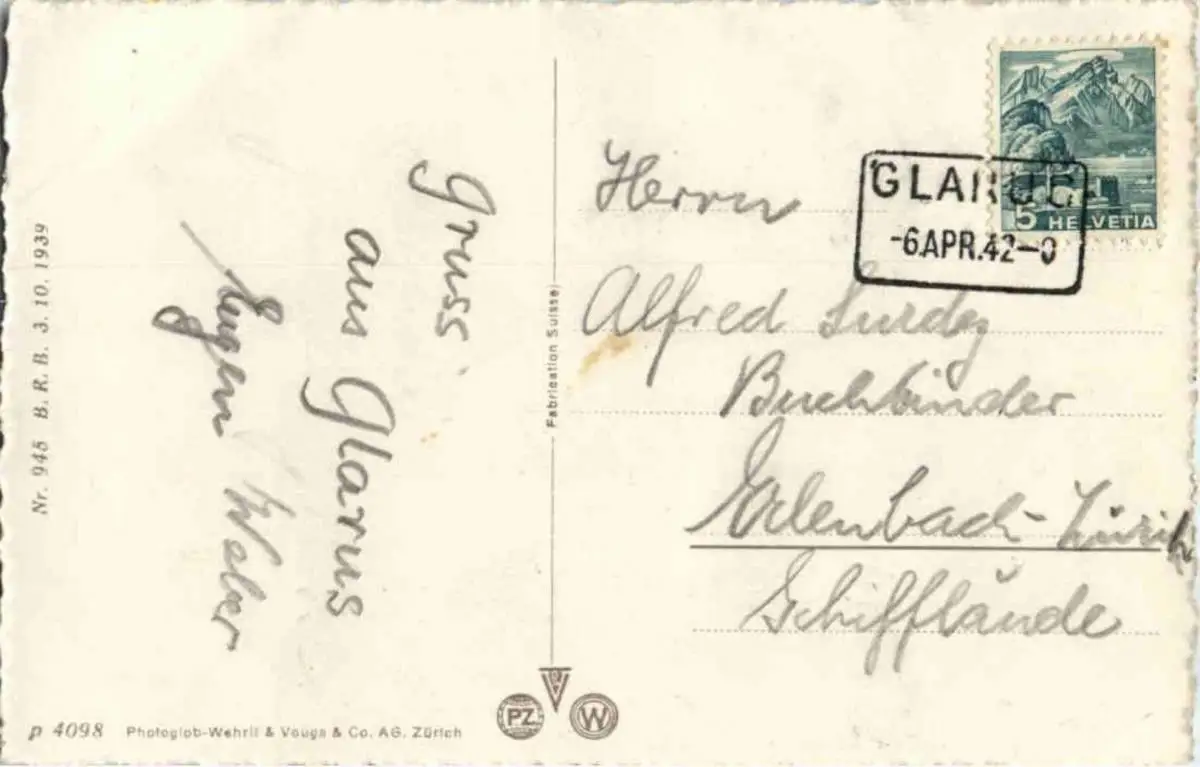 Gruss
aus Glarus
Eugen Weber
Nr. 945 B. R. B. 3. 10. 1939
p 4098 Photoglob-Wehrli & Vouga & Co. AG. Zürich
Fabrication Suisse
PZ
W
5 HELVETIA
GLARUS
-6.APR.42-9
Herrn
Alfred
Buchbinder
Erlenbach-Zürich
Schifflände